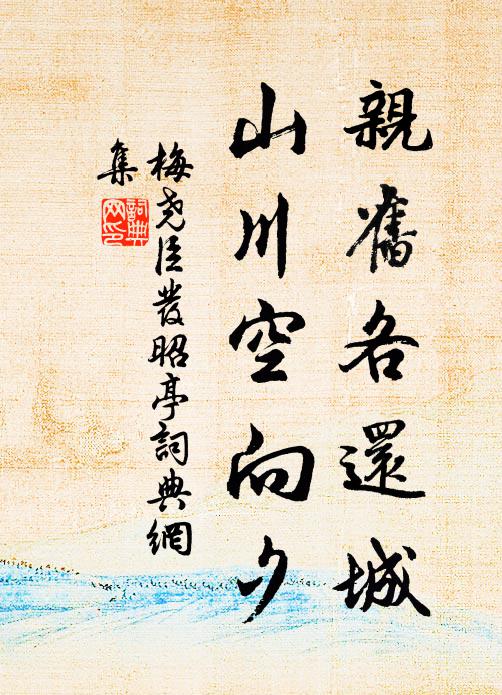 親舊各還城
山川空向夕
梅尧臣發昭亭詞典網
集
詞典
网印